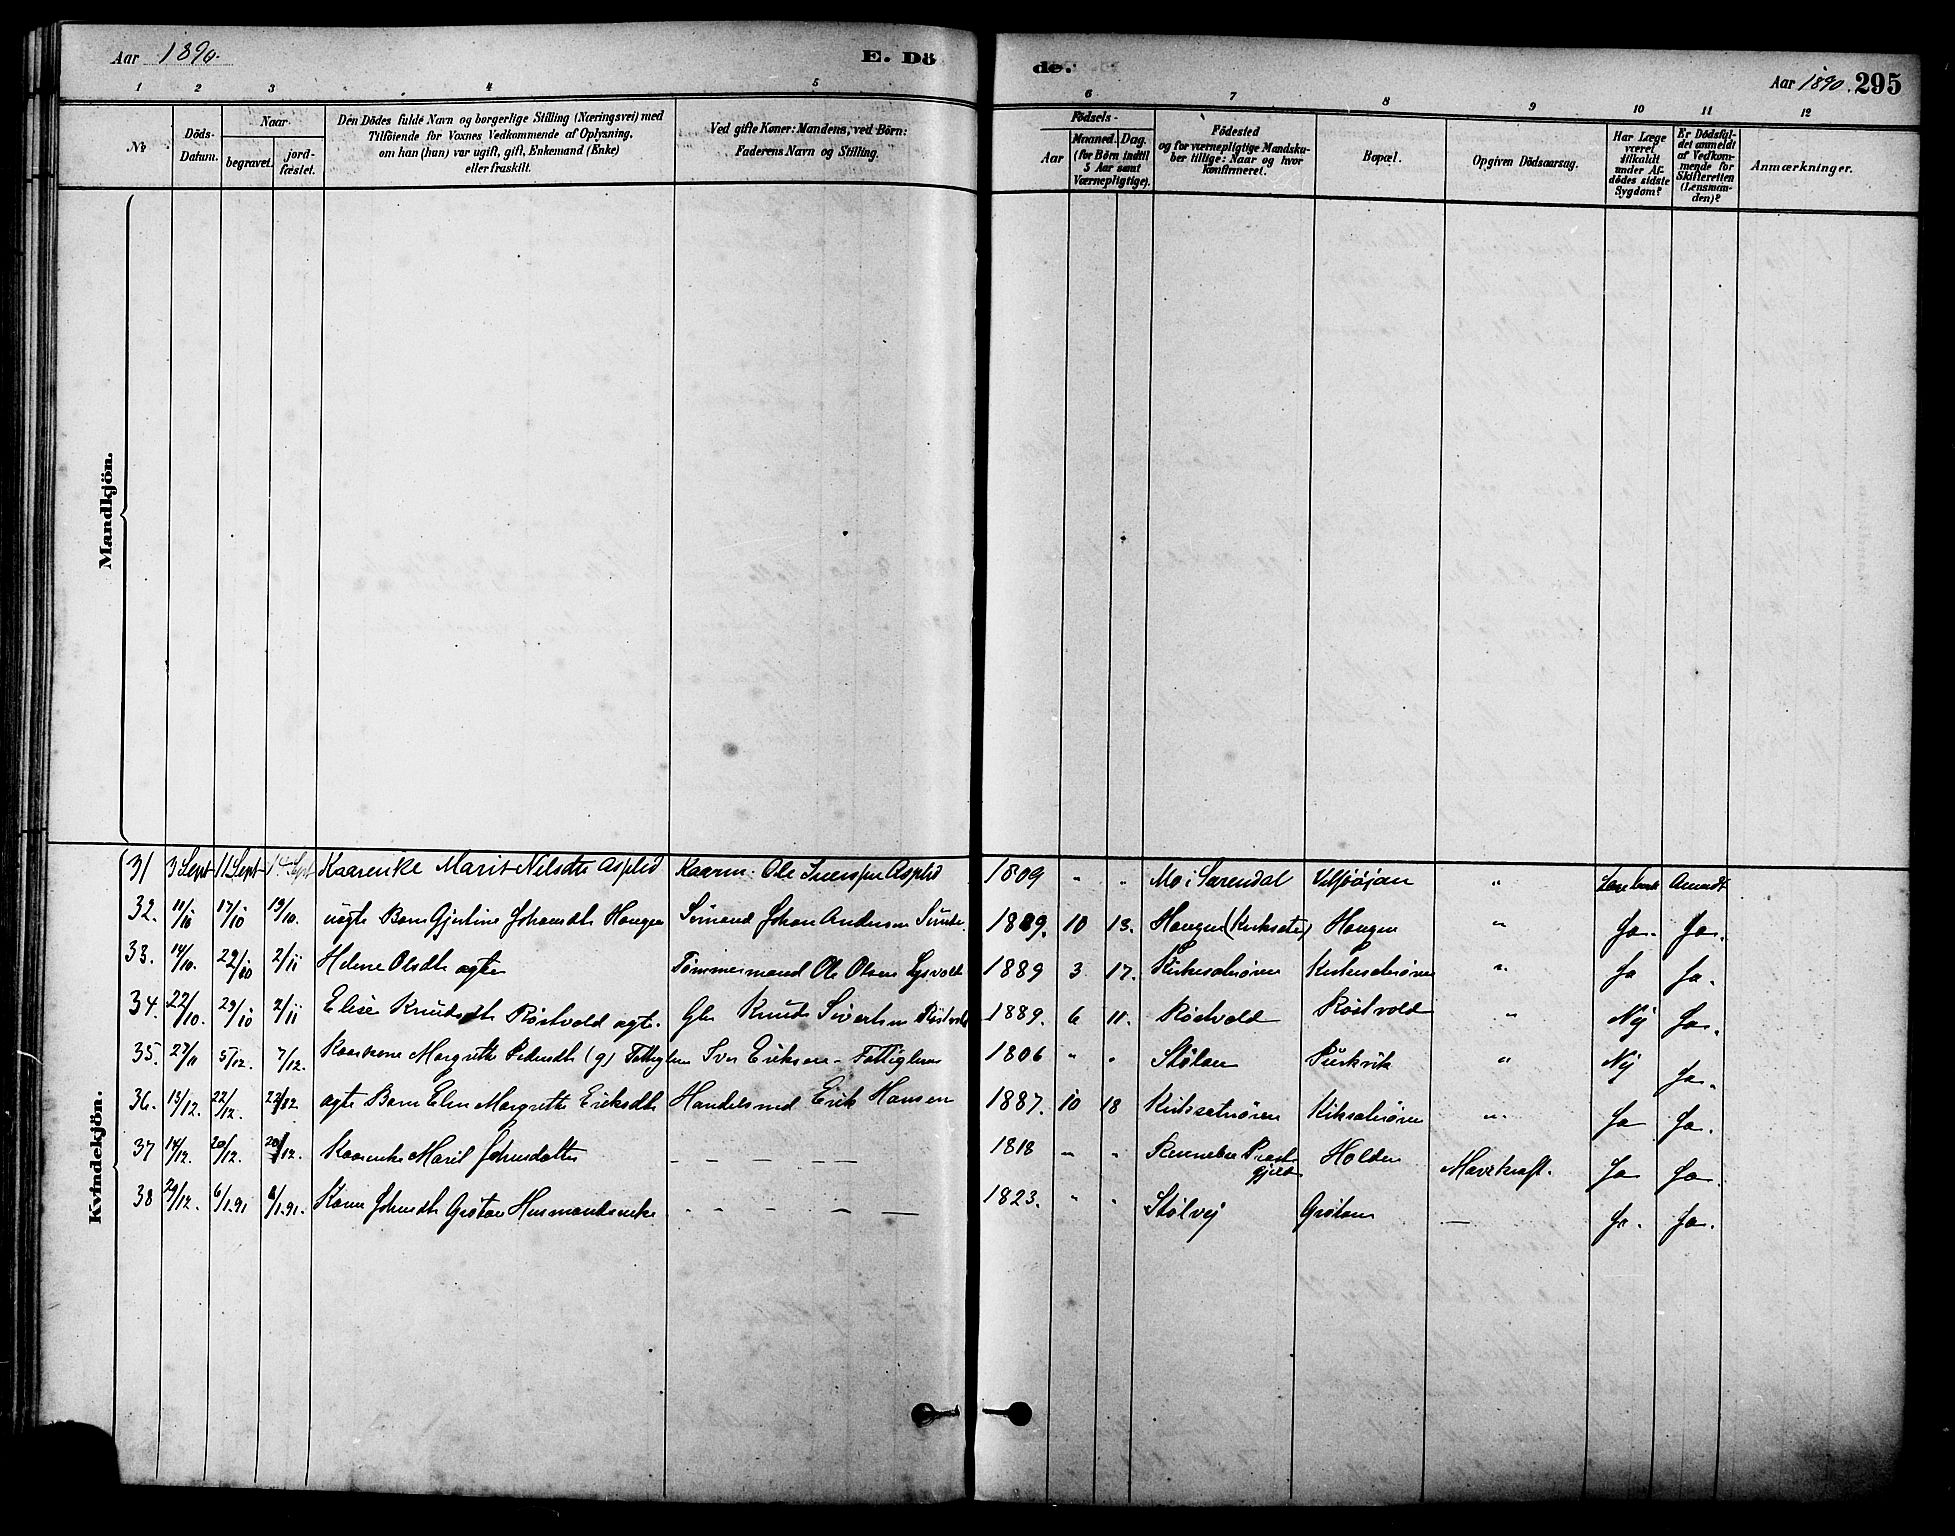 Aar 1890.
E. Dö
de.
Aar 1890. 295
1 2 3 4 5 6 7 8 9 10 11 12
No
Döds-Datum.
Naar
begravet. jord-fæstet.
Den Dödes fulde Navn og borgerlige Stilling (Næringsvei) med
Tilföiende for Voxnes Vedkommende af Oplysning,
om han (hun) var ugift, gift, Enkemand (Enke)
eller fraskilt.
Ved gifte Koner: Mandens, ved Börn:
Faderens Navn og Stilling.
Födsels-
Aar
Maaned. Dag.
(for Börn indtil
5 Aar samt
Værnepligtige).
Födested
og for værnepligtige Mandska-
ber tillige: Naar og hvor
konfirmeret.
Bopæl.
Opgiven Dödsaarsag.
Har Læge
været
tilkaldt
under Af-
dödes sidste
Sygdom?
Er Dödsfal-
det anmeldt
af Vedkom-
mende for
Skifteretten
(Lensman-
den)?
Anmærkninger.
Mandkjön.
Kvindekjön.
31 3 Sept 11 Sept Sept Kaarenke Marit Nilsdtr Asplid Kaarm. Ole Asplid 1809 " " Mo i Surendal "
32. 11/10 17/10 19/10. uægte Barn Gjertine Johansdtr Haugen Sömand Johan Andersen 1889. 10 13. Haugen Haugen " Ja. Ja.
33. 14/10. 22/10 2/11 Helene Olsdtr ægte Tömmermand Ole Olsen 1889 3 17. Kirksæterören Kirksæterören " Ja Ja.
34. 22/10. 29/10 2/11 Elise Knudsdtr Röstvold ægte. Gbr Knud Sivertsen Röstvold 1889. 6 11. Röstvold Röstvold " Nej Ja.
35. 27/11 5/12. 7/12. Margrethe Pedersdtr (g) Fattiglem Iver Eriksen - Fattiglem 1806 " " Stölan " Nej Ja.
36. 13/12. 22/12. 22/12 ægte Barn Elen Margrethe Eriksdtr Handelsmd Erik Hansen 1887. 10 18 Kirksæterören Kirksæterören " Ja Ja.
37 14/12. 20/12. 20/12. Kaarenke Marit Johnsdatter – – – – – 1818 " " Rennebo Præstegjeld Holden Mavekræft. Ja Ja.
38 29/12. 6/1.91 8/1.91. Johnsdtr Grötan Husmandsenke – – – – – 1823. " " Stölvej Grötan — Ja. Ja.